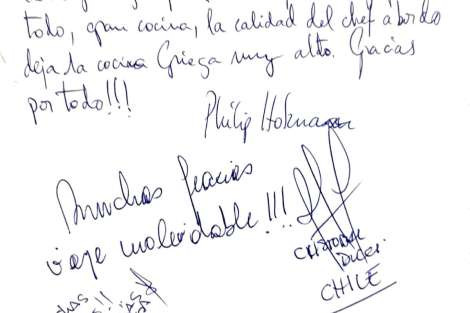 todo, gran cocina, la calidad del chef a bordo
deja la cocina Griega muy alto. Gracias
por todo!!!
Philip
Munchas Gracias
viaje inolvidable !!!
CHILE